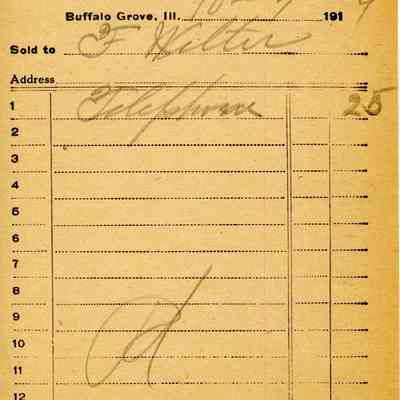 Buffalo Grove, Ill. 191
Sold to F Wilter
Address
1 Telephone 25
2
3
4
5
6
7
8
9
10
11
12